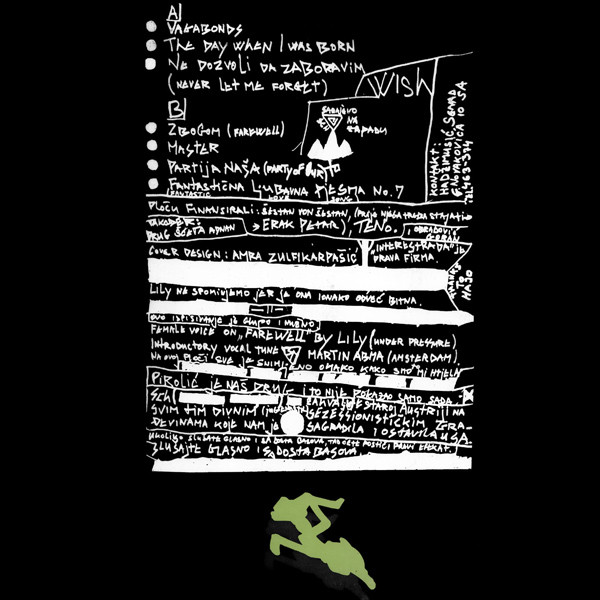 A)
VAGABONDS
THE DAY WHEN I WAS BORN
NE DOZVOLI DA ZABORAVIM
(NEVER LET ME FORGET)
B)
ZBOGOM (FAREWELL)
MASTER
PARTIJA NAŠA (PARTY OF OUR)
FANTASTIČNA LJUBAVNA PJESMA No. 7
FANTASTIC LOVE SONG
SARAJEVO
NA
ZAPADU
WISH
KONTAKT:
HADŽIMUSIĆ SENAD
NOVAKOVIĆA 10 SA
PLOČU FINANSIRALI: ŠESTAN VON ŠESTAN,
TAKOĐER:
DRUG ŠĆETA ADNAN
ERAK PETAR, TENO.
I OBRADOVIĆ
GORAN
COVER DESIGN: AMRA ZULFIKARPAŠIĆ
"INTERESTRADA" JE
PRAVA FIRMA.
THANKS
TO
HAJO
LILY NE SPOMINJEMO JER JE ONA IONAKO ODVEĆ BITNA.
— 11 —
OVO ISPISIVANJE JE GLUPO I MUČNO
FEMALE VOICE ON "FAREWELL" BY LILY (UNDER PRESSURE)
INTRODUCTORY VOCAL TUNE
MARTIN ABMA (AMSTERDAM).
NA OVOJ PLOČI SVE JE SNIMLJENO ONAKO KAKO SMO MI HTJELI
PIROLIĆ JE NAŠ DRUG I TO NIJE POKAZAO SAMO SADA.
ZAHVALJUJE STAROJ AUSTRIJI NA
SVIM TIM DIVNIM
SEZESSIONISTIČKIM ZGRA-
DEVINAMA KOJE NAM JE
SAGRADILA I OSTAVILA U SA.
UKOLIKO SLUŠATE GLASNO I SA DOSTA BASOVA, TAD ĆETE POSTIĆI PRAVI EFEKAT.
SLUŠAJTE GLASNO I SA DOSTA BASOVA